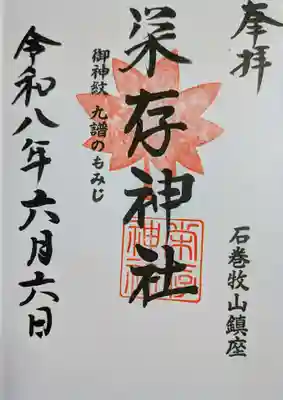 奉拝
石巻牧山鎮座
栄存神社
御神紋 九譜のもみじ
令和八年六月六日